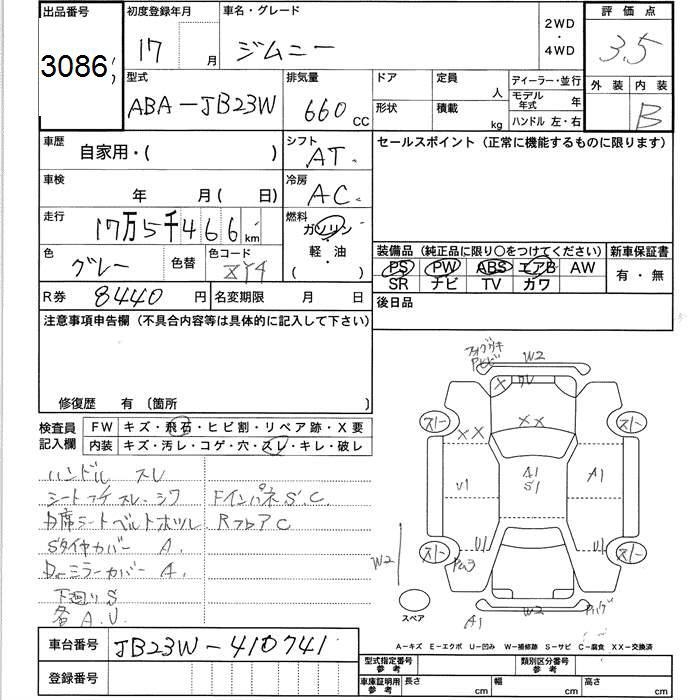 出品番号 初度登録年月 車名・グレード 2WD・4WD 評価点
3086 17 月 ジムニー 3.5
型式 排気量 ドア 定員 人 ディーラー・並行 外装 内装
ABA-JB23W 660 CC 形状 積載 kg モデル年式 年 B
ハンドル 左・右
車歴 自家用・( ) シフト AT. セールスポイント (正常に機能するものに限ります)
車検 年 月( 日) 冷房 AC.
走行 17万5千466km 燃料 ガソリン・軽・油・( )
色 グレー 色替 色コード
装備品 (純正品に限り○をつけてください) 新車保証書
PS PW ABS エアB AW 有・無
SR ナビ TV カワ
R券 8440 円 名変期限 月 日 後日品
注意事項申告欄 (不具合内容等は具体的に記入して下さい)
修復歴 有 〔箇所 〕
検査員記入欄 FW キズ・飛石・ヒビ割・リペア跡・X要
内装 キズ・汚レ・コゲ・穴・スレ・キレ・破レ
ハンドル スレ
シート スレ、シワ Fインパネ S.C.
席シートベルトホツレ RフロアC
Sタイヤカバー A.
ミラーカバー A.
下廻り S
各 A.U.
W2
X クレ
スト XX XX スト
U1 A1 S1 A1
スト U1 U1 スト
W2
スペア A1 W2
A-キズ E-エクボ U-凹み W-補修跡 S-サビ C-腐食 XX-交換済
車台番号 JB23W-410741
登録番号
型式指定番号参考 類別区分番号参考
車庫証明用参考 長さ cm 幅 cm 高さ cm